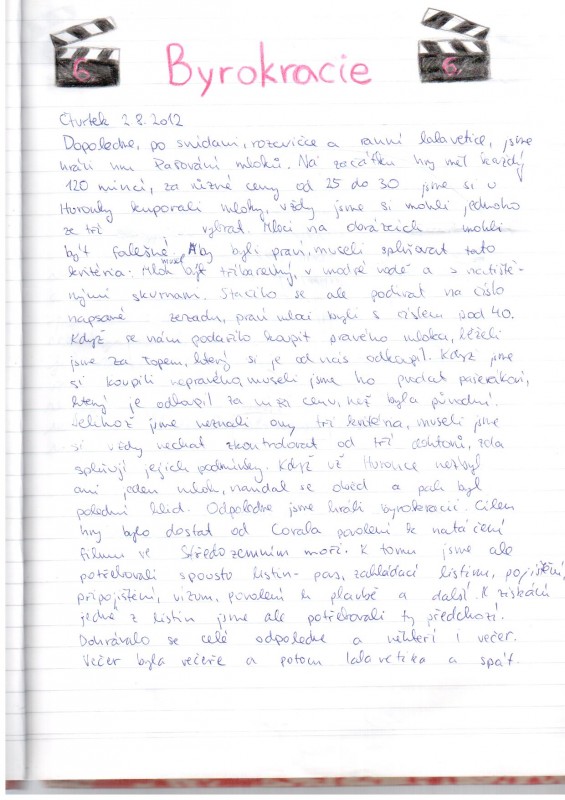 6. Byrokracie 6.
Čtvrtek 2.8.2012
Dopoledne, po snídani, rozcvičce a ranní lalavetice, jsme
hráli hru Pašování mloků. Na začátku hry měl každý
120 mincí, za různé ceny od 25 do 30 jsme si u
Huronky kupovali mloky, vždy jsme si mohli jednoho
ze tří vybrat. Mloci na obrázcích mohli
být falešné. Aby byli praví, museli splňovat tato
kritéria: Mlok musel být tříbarevný, v modré vodě a s netiště-
nými skvrnam. Stačilo se ale podívat na číslo
napsané zezadu, praví mloci byli s číslem pod 40.
Když se nám podařilo koupit pravého mloka, běželi
jsme za Topem, který si je od nás odkoupil. Když jsme
si koupili nepravého, museli jsme ho prodat pašerákovi,
který je odkoupil za nižší cenu, než byla původní.
Jelikož jsme neznali ony tři kritéria, museli jsme
si vždy nechat zkontrolovat od tří, zda
splňují jejich podmínky. Když už Huronce nezbyl
ani jeden mlok, vandal se oběd a pak byl
polední klid. Odpoledne jsme hráli byrokracii. Cílem
hry bylo dostat od Corala povolení k natáčení
filmu ve Středozemním moři. K tomu jsme ale
potřebovali spousto listin- pas, zakládací listinu, pojištění,
připojištění, vízum, povolení k plavbě a další. K získání
jedné z listin jsme ale potřebovali ty předchozí.
Dohrávalo se celé odpoledne a někteří i večer.
Večer byla večeře a potom lalavetika a spát.